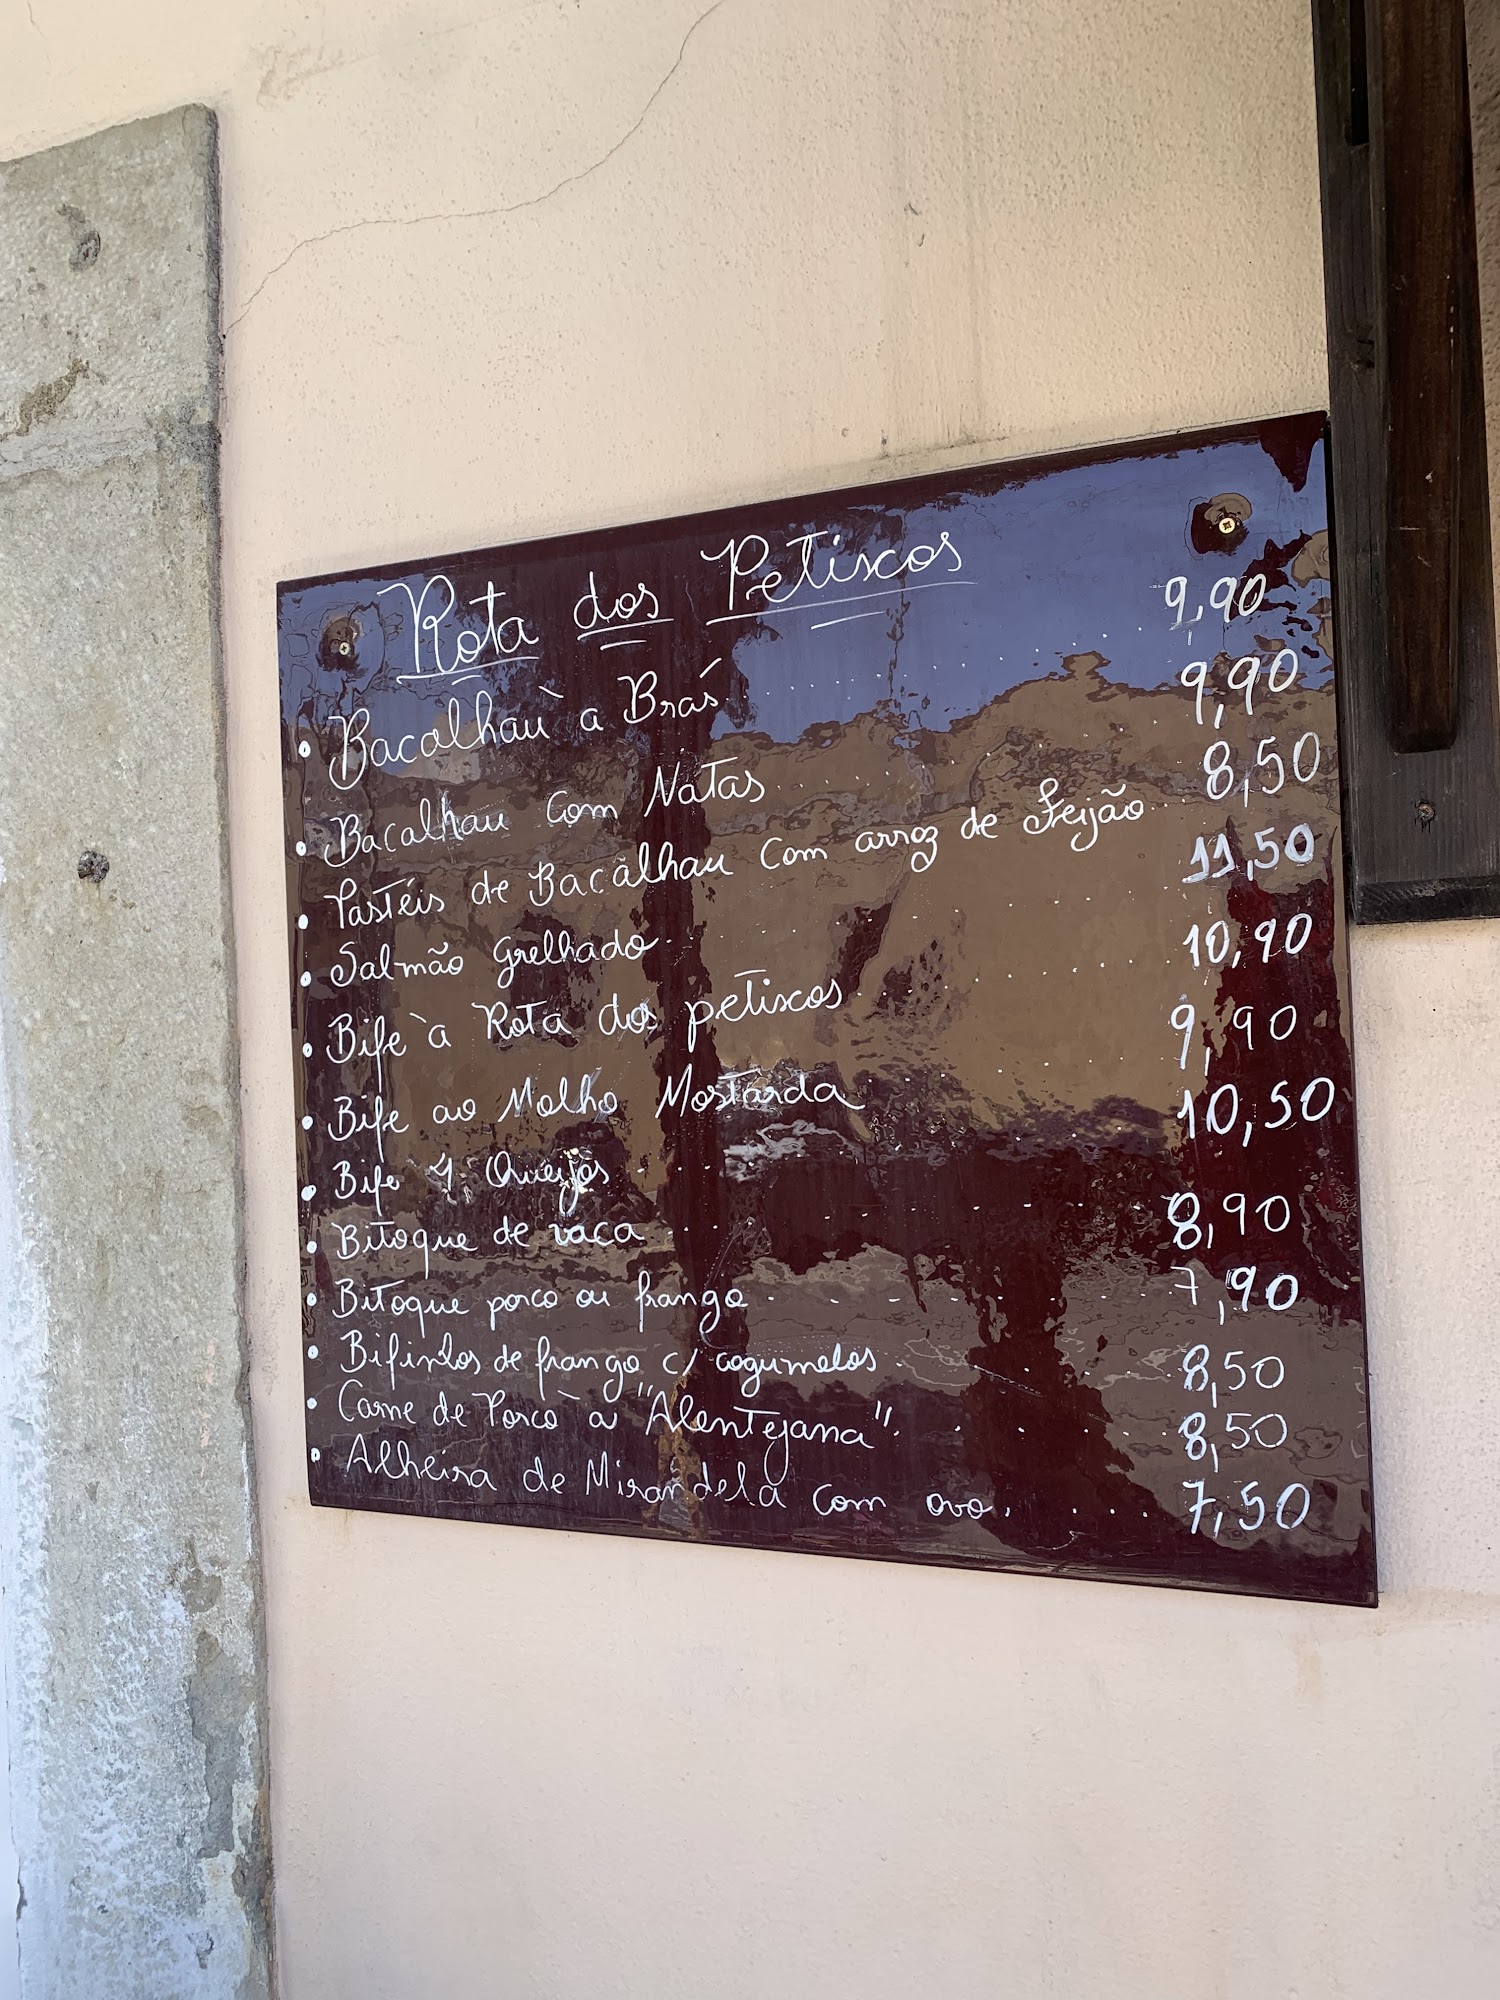 Rota dos Petiscos
• Bacalhau à Brás ........ 9,90
• Bacalhau com Natas ........ 9,90
• Pastéis de Bacalhau com arroz de Feijão ... 8,50
• Salmão Grelhado ........ 11,50
• Bife à Rota dos petiscos ........ 10,90
• Bife ao Molho Mostarda ........ 9,90
• Bife 4 Queijos ........ 10,50
• Bitoque de vaca ........ 8,90
• Bitoque porco ou frango ........ 7,90
• Bifinhos de frango c/ cogumelos ........ 8,50
• Carne de Porco à "Alentejana" ........ 8,50
• Alheira de Mirandela com ovo ..... 7,50